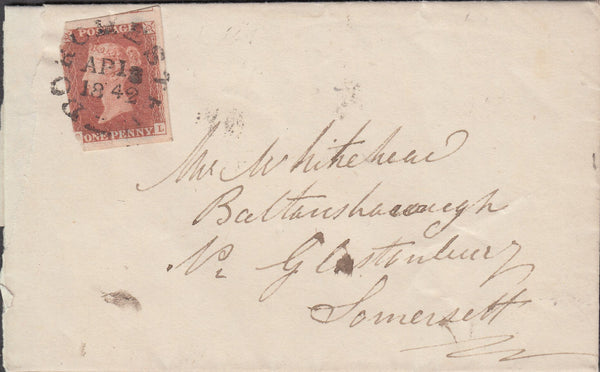 POSTAGE
DORCHESTER
AP 13
1842
ONE PENNY
L
Mr Whitehead
Baltonsborough
Nr Glastonbury
Somersett